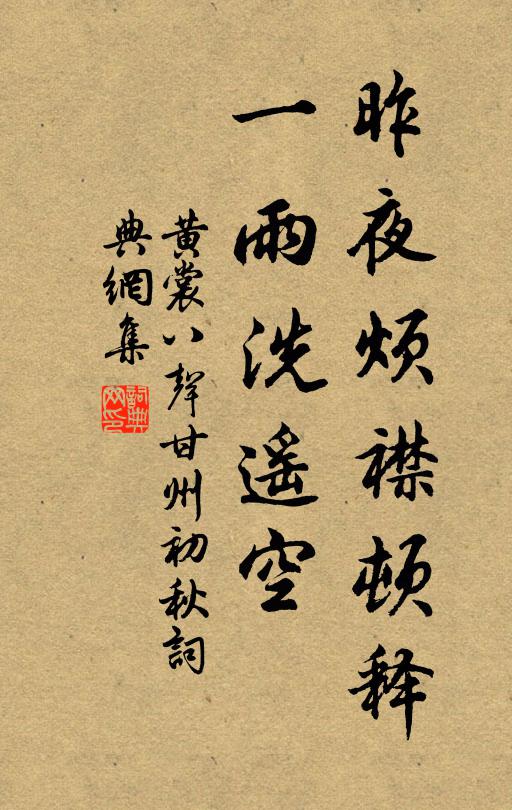 昨夜烦襟顿释
一雨洗遥空
黄裳八聲甘州初秋詞
典網集
詞典網印